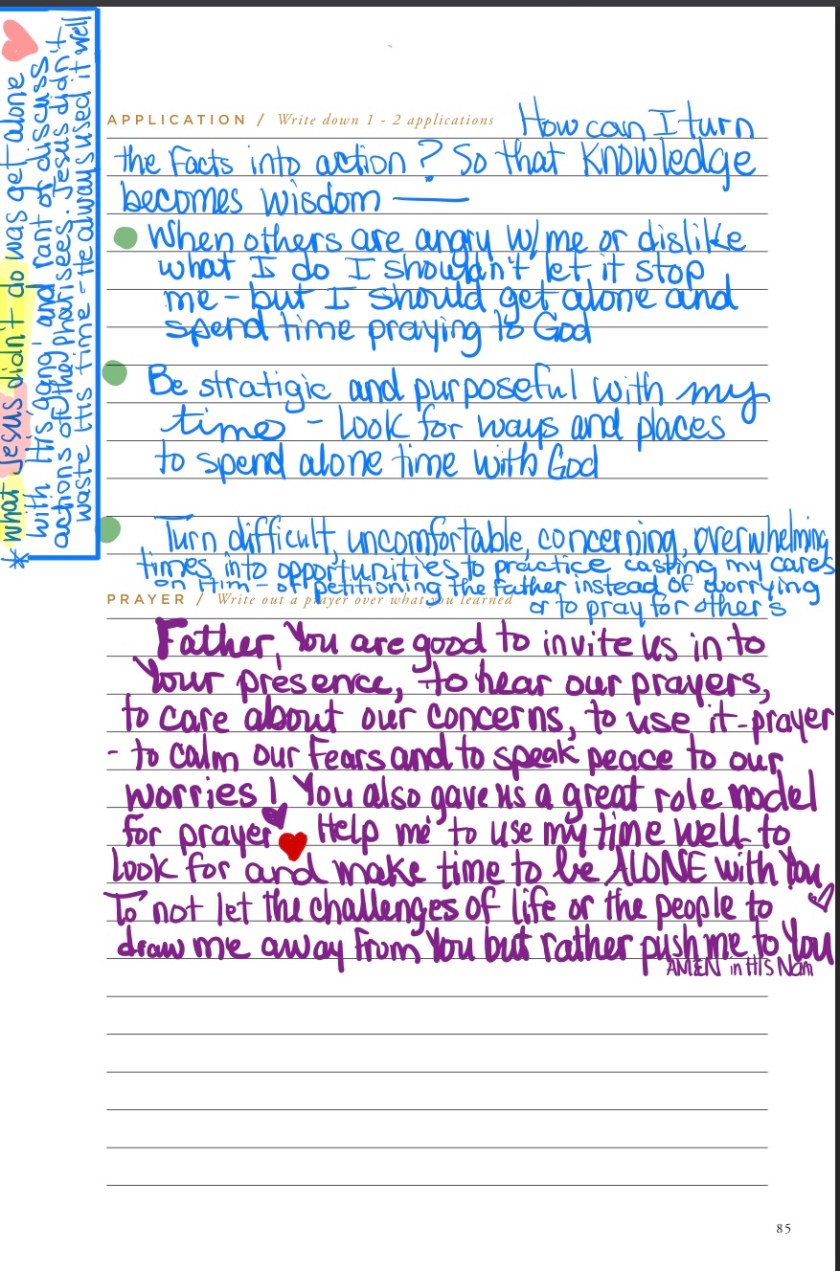 * what Jesus didn't do was get alone
with His 'gang' and rant or discuss
actions of the pharisees. Jesus didn't
waste His time - He always used it well
APPLICATION / Write down 1 - 2 applications How can I turn
the Facts into action? So that KNOWLEdge
becomes wisdom —
When others are angry w/me or dislike
what I do I shouldn't let it stop
me - but I should get alone and
spend time praying to God
Be stratigic and purposeful with my
time - look for ways and places
to spend alone time with God
Turn difficult, uncomfortable, concerning, overwhelming
times into opportunities to practice casting my cares
on Him - of petitioning the Father instead of worrying
or to pray for other's
PRAYER / Write out a prayer over what you learned
Father, You are good to invite us in to
Your presence, to hear our prayers,
to care about our concerns, to use it-prayer
- to calm our Fears and to speak peace to our
worries! You also gave us a great role model
for prayer Help me to use my time well to
Look for and make time to be ALONE with You
To not let the challenges of life or the people to
draw me away From You but rather push me to You
AMEN in HIS Nam
85